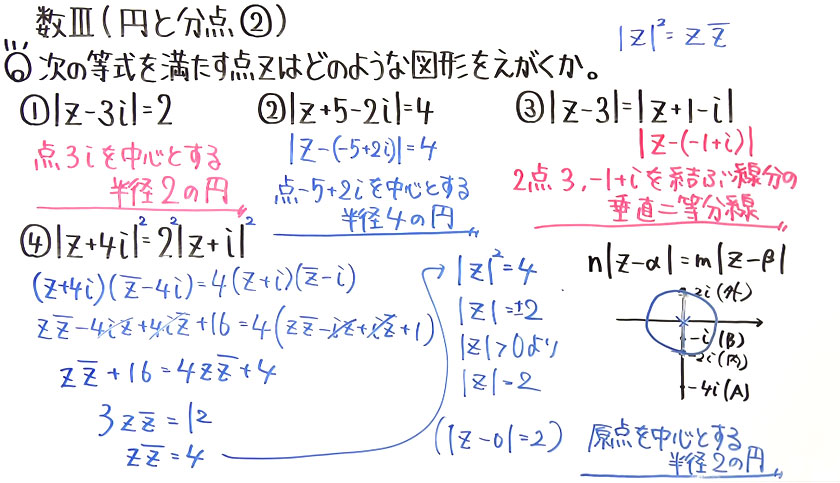 数Ⅲ(円と分点②)
|z|²=zz̅
次の等式を満たす点zはどのような図形をえがくか。
①|z-3i|=2
点3iを中心とする
半径2の円
②|z+5-2i|=4
|z-(-5+2i)|=4
点-5+2iを中心とする
半径4の円
③|z-3|=|z+1-i|
|z-(-1+i)|
2点3,-1+iを結ぶ線分の
垂直二等分線
④|z+4i|²=2²|z+i|²
(z+4i)(z̅-4i)=4(z+i)(z̅-i)
zz̅-4iz+4iz̅+16=4(zz̅-iz+iz̅+1)
zz̅+16=4zz̅+4
3zz̅=12
zz̅=4
|z|²=4
|z|=±2
|z|>0より
|z|=2
(|z-0|=2)
n|z-α|=m|z-β|
2i(外)
-i(B)
-2i(内)
-4i(A)
原点を中心とする
半径2の円